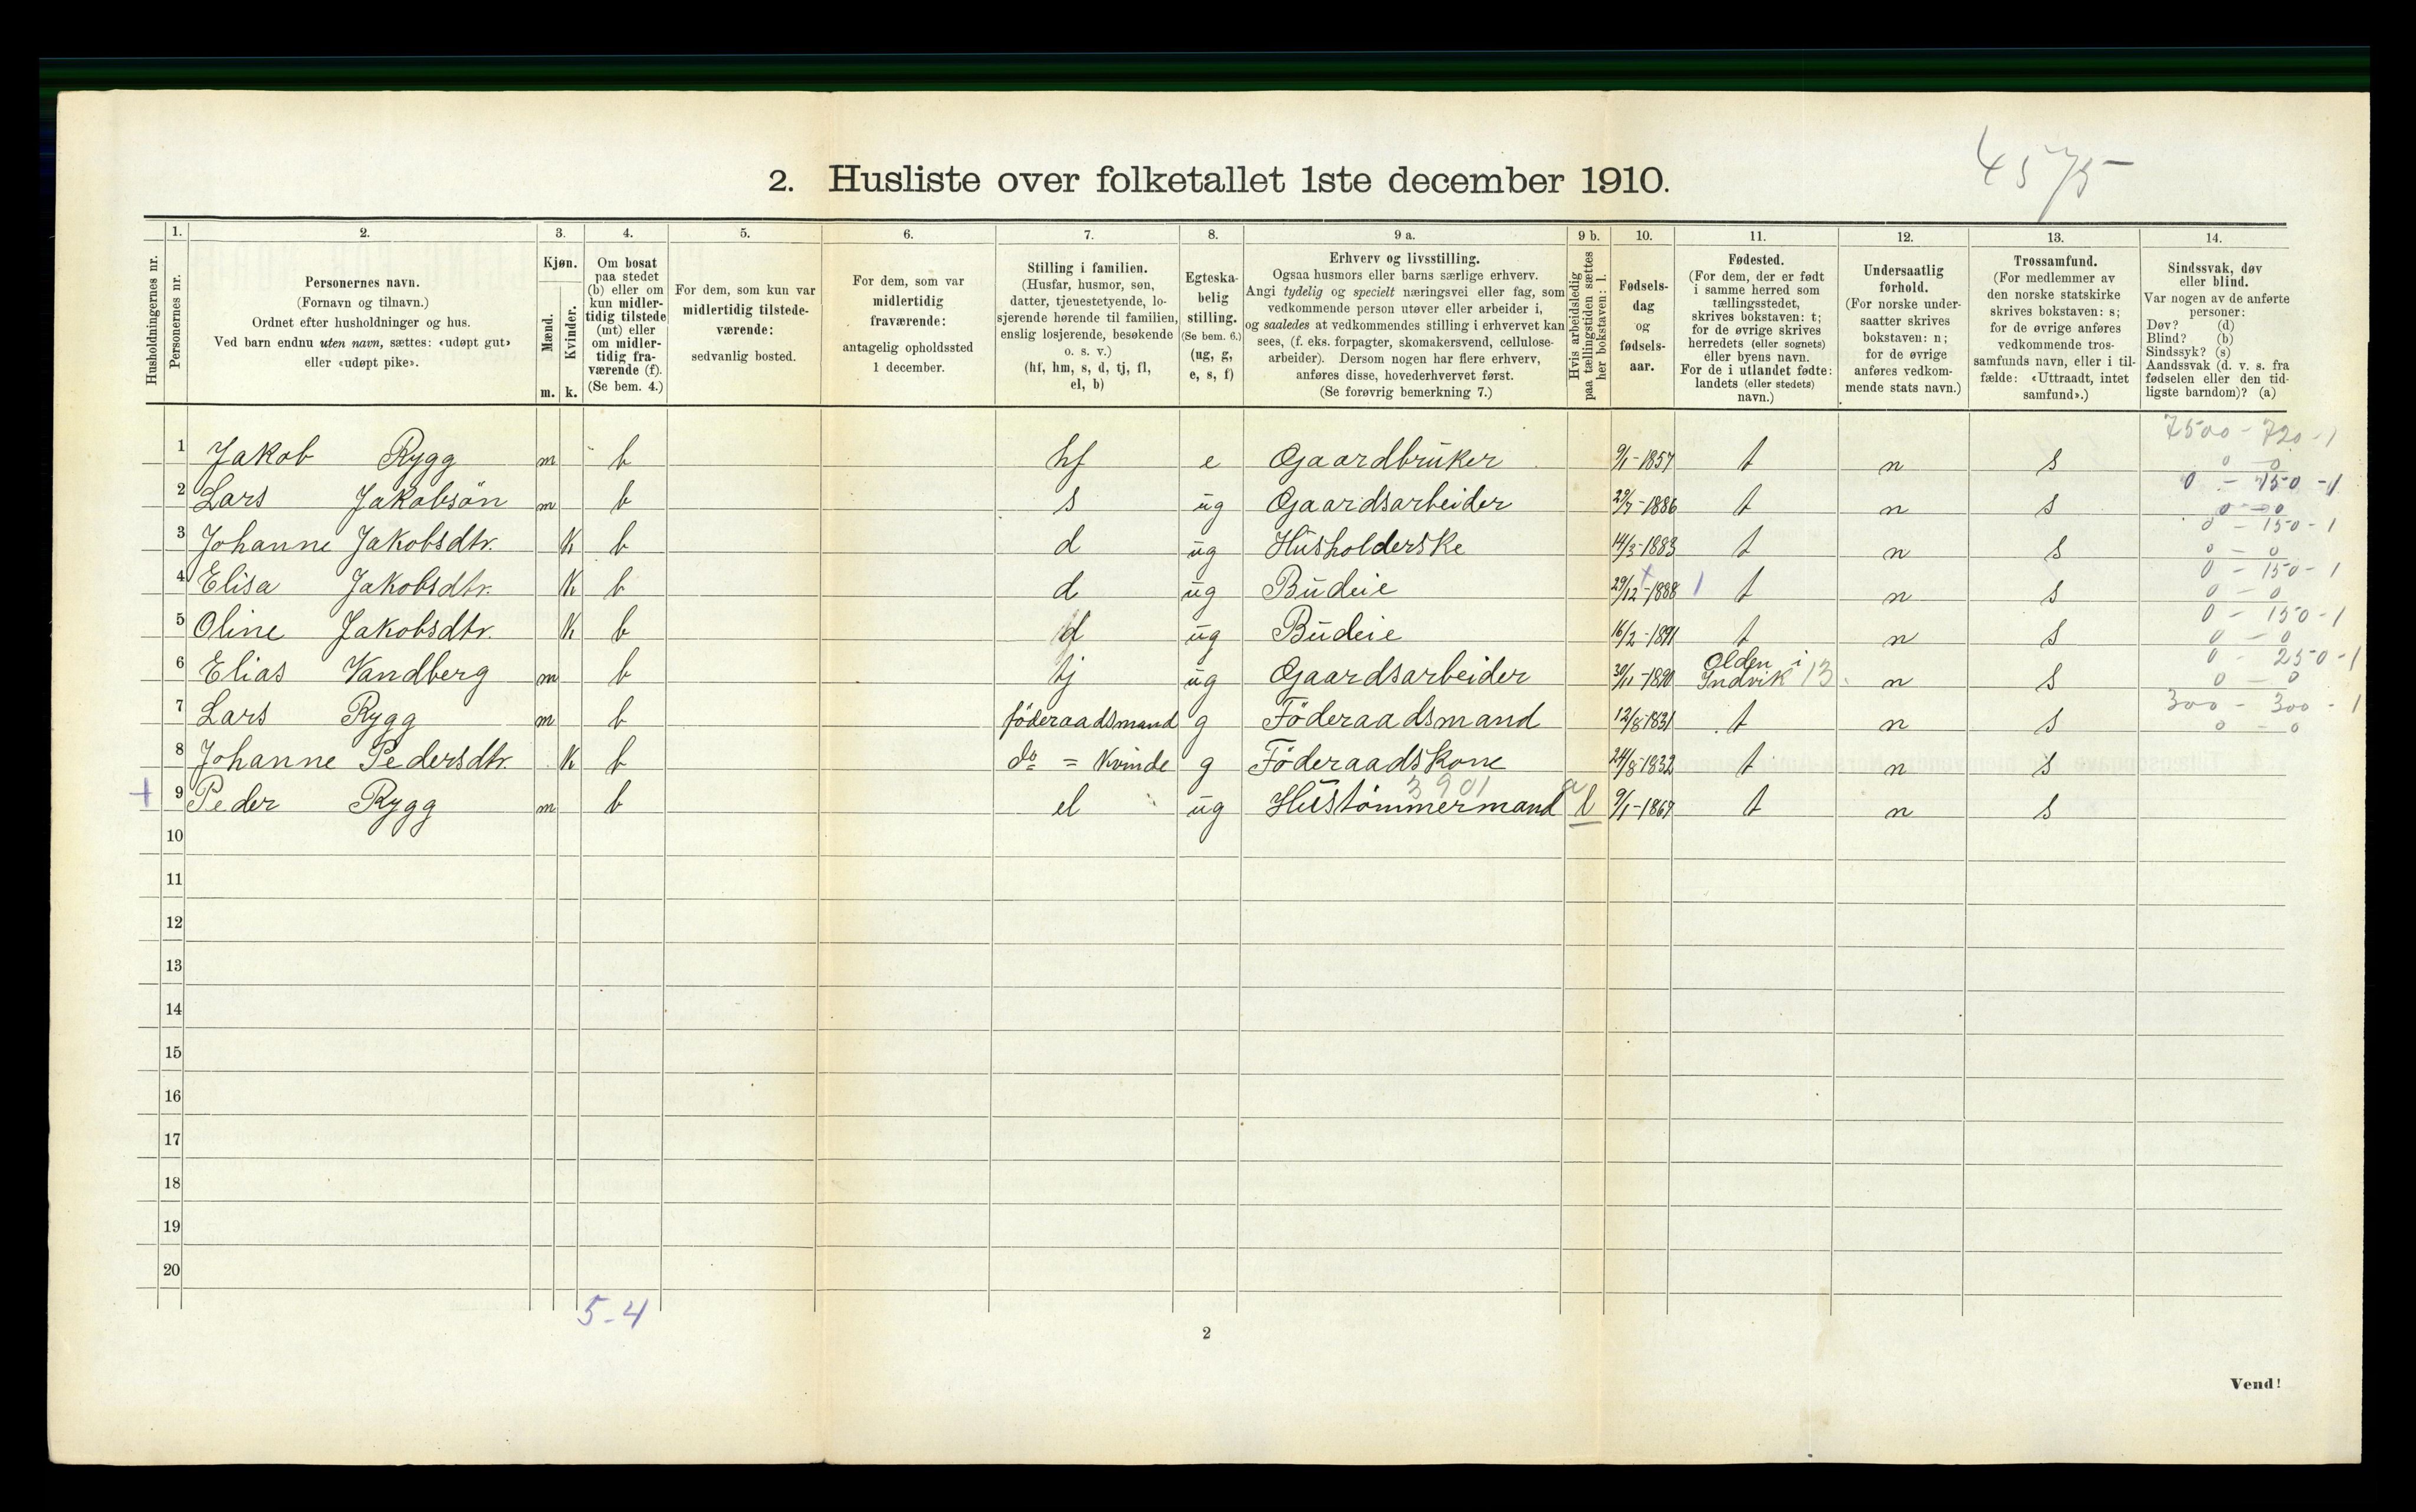 4575
2. Husliste over folketallet 1ste december 1910.
Husholdningernes nr.
1.
Personernes nr.
2.
Personernes navn.
(Fornavn og tilnavn.)
Ordnet efter husholdninger og hus.
Ved barn endnu uten navn, sættes: «udøpt gut»
eller «udøpt pike».
3.
Kjøn.
Mænd.
Kvinder.
m. k.
4.
Om bosat
paa stedet
(b) eller om
kun midler-
tidig tilstede
(mt) eller
om midler-
tidig fra-
værende (f).
(Se bem. 4.)
5.
For dem, som kun var
midlertidig tilstede-
værende:
sedvanlig bosted.
6.
For dem, som var
midlertidig
fraværende:
antagelig opholdssted
1 december.
7.
Stilling i familien.
(Husfar, husmor, søn,
datter, tjenestetyende, lo-
sjerende hørende til familien,
enslig losjerende, besøkende
o. s. v.)
(hf, hm, s, d, tj, fl,
el, b)
8.
Egteska-
belig
stilling.
(Se bem. 6.)
(ug, g,
e, s, f)
9 a.
Erhverv og livsstilling.
Ogsaa husmors eller barns særlige erhverv.
Angi tydelig og specielt næringsvei eller fag, som
vedkommende person utøver eller arbeider i,
og saaledes at vedkommendes stilling i erhvervet kan
sees, (f. eks. forpagter, skomakersvend, cellulose-
arbeider). Dersom nogen har flere erhverv,
anføres disse, hovederhvervet først.
(Se forøvrig bemerkning 7.)
9 b.
Hvis arbeidsledig
paa tællingstiden sættes
her bokstaven: l.
10.
Fødsels-
dag
og
fødsels-
aar.
11.
Fødested.
(For dem, der er født
i samme herred som
tællingsstedet,
skrives bokstaven: t;
for de øvrige skrives
herredets (eller sognets)
eller byens navn.
For de i utlandet fødte:
landets (eller stedets)
navn.)
12.
Undersaatlig
forhold.
(For norske under-
saatter skrives
bokstaven: n;
for de øvrige
anføres vedkom-
mende stats navn.)
13.
Trossamfund.
(For medlemmer av
den norske statskirke
skrives bokstaven: s;
for de øvrige anføres
vedkommende tros-
samfunds navn, eller i til-
fælde: «Uttraadt, intet
samfund».)
14.
Sindssvak, døv
eller blind.
Var nogen av de anførte
personer:
Døv? (d)
Blind? (b)
Sindssyk? (s)
Aandssvak (d. v. s. fra
fødselen eller den tid-
ligste barndom)? (a)
7500 - 720 - 1
1 Jakob Rygg m b hf e Gaardbruker 9/1-1857 t n s 0 - 0
0 - 150 - 1
2 Lars Jakobsön m b s ug Gaardsarbeider 29/7-1886 t n s 0 - 0
0 - 150 - 1
3 Johanne Jakobsdtr. K b d ug Husholderske 14/3-1883 t n s 0 - 0
0 - 150 - 1
4 Elisa Jakobsdtr. K b d ug Budeie 29/12-1888 1 t n s 0 - 0
0 - 150 - 1
5 Oline Jakobsdtr. K b d ug Budeie 16/2-1891 t n s 0 - 0
0 - 250 - 1
6 Elias Vandberg m b tj ug Gaardsarbeider 30/11-1890 Olden i Indvik 13 n s 0 - 0
300 - 300 - 1
7 Lars Rygg m b föderaadsmand g Föderaadsmand 12/8-1831 t n s 0 - 0
8 Johanne Pedersdtr. K b do = Kvinde g Föderaadskone 24/8-1832 t n s
3901 a
+ 9 Peder Rygg m b el ug Hustömmermand l 9/1-1867 t n s
10
11
12
13
14
15
16
17
18
19
20
5-4
2
Vend!